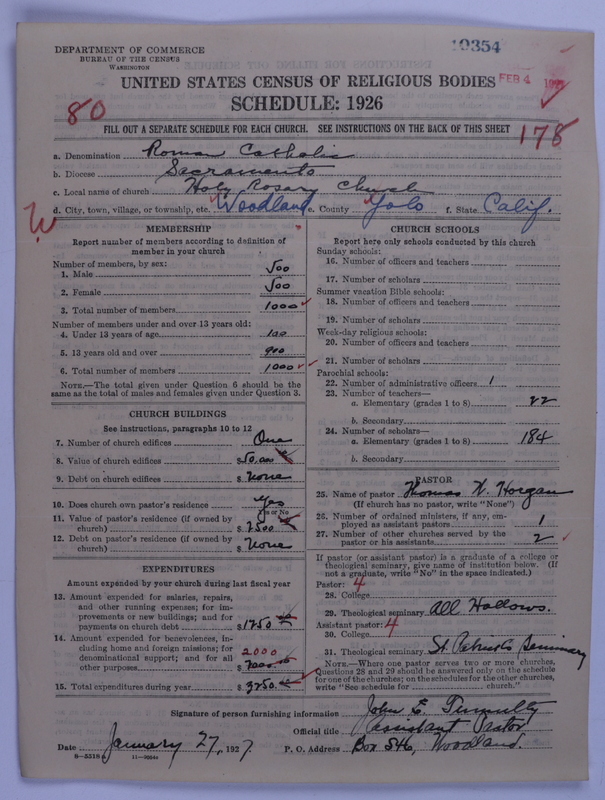 DEPARTMENT OF COMMERCE
BUREAU OF THE CENSUS
WASHINGTON
19354
UNITED STATES CENSUS OF RELIGIOUS BODIES
FEB 4
SCHEDULE: 1926
80
FILL OUT A SEPARATE SCHEDULE FOR EACH CHURCH. SEE INSTRUCTIONS ON THE BACK OF THIS SHEET
178
a. Denomination Roman Catholic
b. Diocese Sacramento
c. Local name of church Holy Rosary Church
d. City, town, village, or township, etc. Woodland e. County Yolo f. State Calif.
W
MEMBERSHIP
Report number of members according to definition of
member in your church
Number of members, by sex:
1. Male 500
2. Female 500
3. Total number of members 1000
Number of members under and over 13 years old:
4. Under 13 years of age 100
5. 13 years old and over 900
6. Total number of members 1000
NOTE.—The total given under Question 6 should be the
same as the total of males and females given under Question 3.
CHURCH BUILDINGS
See instructions, paragraphs 10 to 12
7. Number of church edifices One
8. Value of church edifices $50,000
9. Debt on church edifices $ None
10. Does church own pastor's residence? Yes
Yes or No
11. Value of pastor's residence (if owned by
church) $ 7500
12. Debt on pastor's residence (if owned by
church) $ None
EXPENDITURES
Amount expended by your church during last fiscal year
13. Amount expended for salaries, repairs,
and other running expenses; for im-
provements or new buildings; and for
payments on church debt $1250
14. Amount expended for benevolences, in-
cluding home and foreign missions; for
denominational support; and for all
other purposes $ 2000
15. Total expenditures during year $ 3250
CHURCH SCHOOLS
Report here only schools conducted by this church
Sunday schools:
16. Number of officers and teachers
17. Number of scholars
Summer vacation Bible schools:
18. Number of officers and teachers
19. Number of scholars
Week-day religious schools:
20. Number of officers and teachers
21. Number of scholars
Parochial schools:
22. Number of administrative officers 1
23. Number of teachers—
a. Elementary (grades 1 to 8) 22
b. Secondary
24. Number of scholars—
a. Elementary (grades 1 to 8) 184
b. Secondary
PASTOR
25. Name of pastor Thomas W. Horgan
(If church has no pastor, write "None")
26. Number of ordained ministers, if any, em-
ployed as assistant pastors 1
27. Number of other churches served by the
pastor or his assistants 2
If pastor (or assistant pastor) is a graduate of a college or
theological seminary, give name of institution below. (If
not a graduate, write "No" in the space indicated.)
Pastor: 4
28. College
29. Theological seminary All Hallows.
Assistant pastor: 4
30. College
31. Theological seminary St. Patrick's Seminary
NOTE.—Where one pastor serves two or more churches,
Questions 28 and 29 should be answered only on the schedule
for one of the churches; on the schedules for the other churches,
write "See schedule for church."
Signature of person furnishing information John E.
Official title Assistant Pastor
Date January 27, 1927 P. O. Address Box 546, Woodland.
8-5518